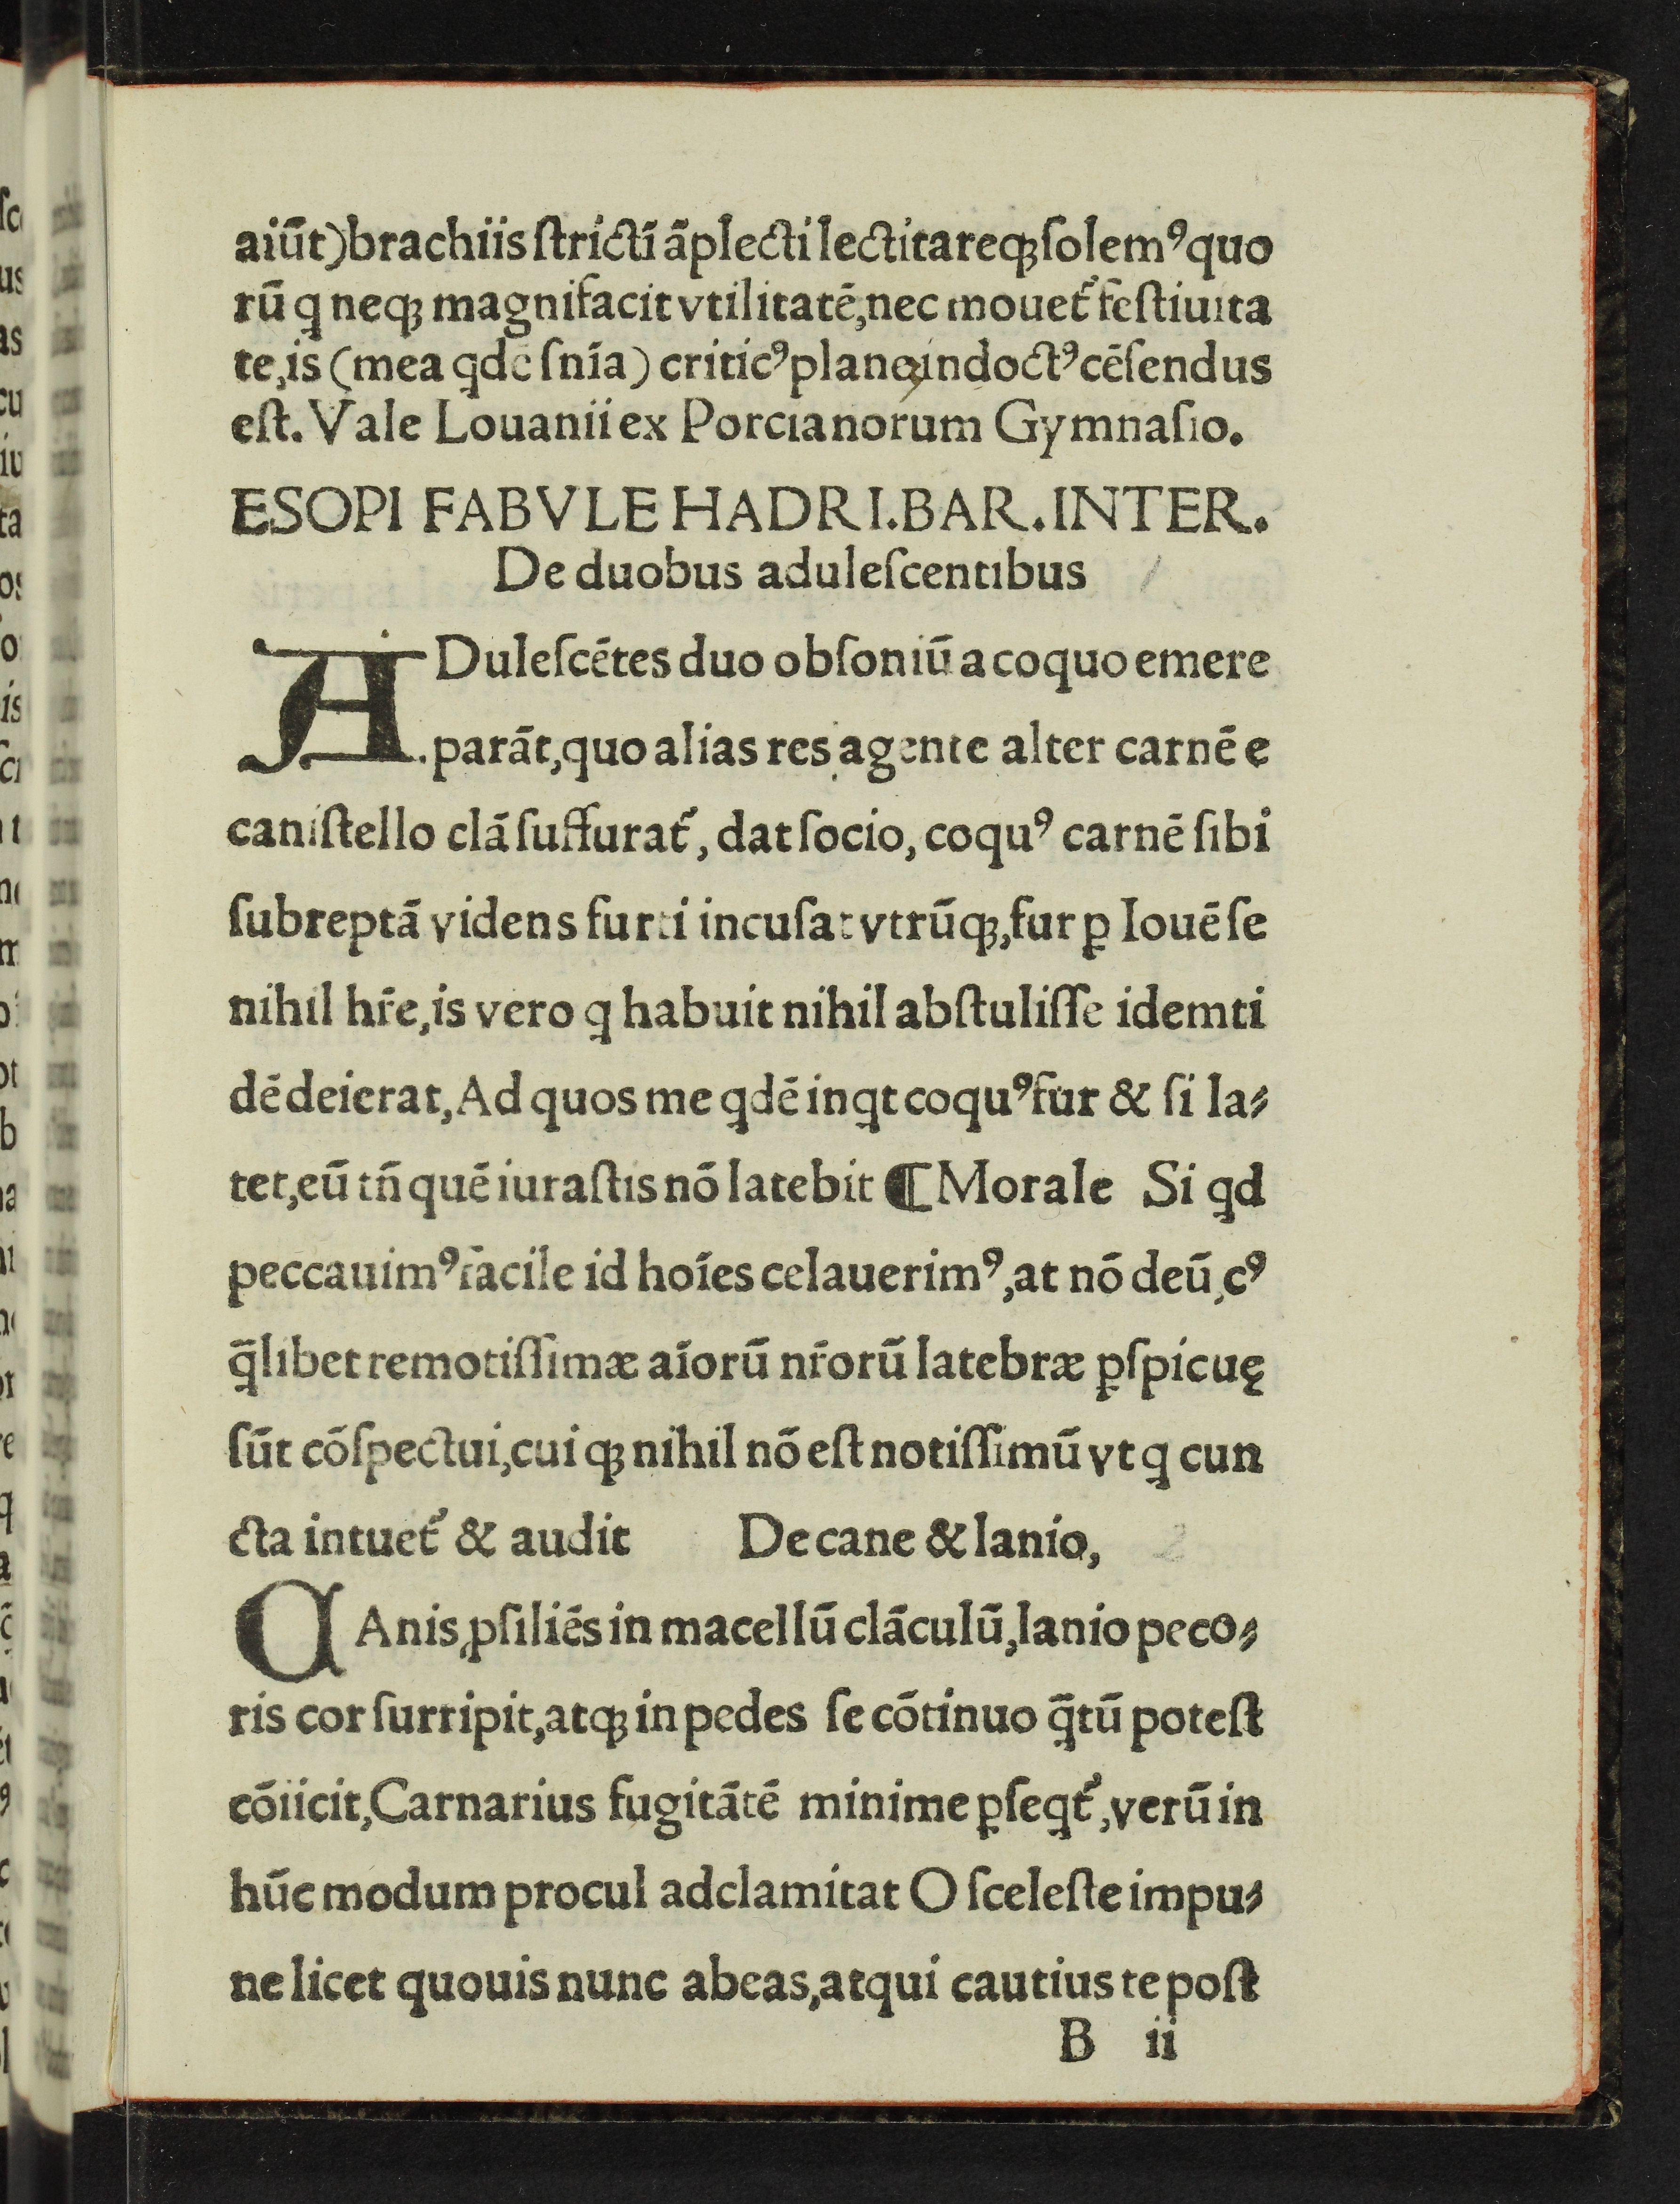 aiūt)brachiis ſtrictī āplecti lectitareqꝫ ſolemꝰ quo
rū q neqꝫ magnifacit vtilitatē,nec mouet᷑ feſtiuita
te,is (mea qdē ſnīa) criticꝰ plane indoctꝰ cēſendus
eſt. Vale Louanii ex Porcianorum Gymnaſio.
ESOPI FABVLE HADRI.BAR.INTER.
De duobus aduleſcentibus
ADuleſcētes duo obſoniū a coquo emere
parāt,quo alias res agente alter carnē e
caniſtello clā ſuffurat᷑, dat ſocio, coquꝰ carnē ſibi
ſubreptā videns furti incuſat vtrūqꝫ,fur ꝑ Iouē ſe
nihil hr̄e,is vero q habuit nihil abſtuliſſe idemti
dē deierat,Ad quos me qdē inqt coquꝰ fur & ſi la⸗
tet,eū tn̄ quē iuraſtis nō latebit ¶ Morale Si qd
peccauimꝰ facile id hoīes celauerimꝰ,at nō deū,cꝰ
q̄libet remotiſſimæ aīorū nr̄orū latebræ ꝑſpicuę
ſūt cōſpectui,cuiqꝫ nihil nō eſt notiſſimū vt q cun
cta intuet᷑ & audit De cane & lanio,
CAnis,ꝓſiliēs in macellū clāculū,lanio peco⸗
ris cor ſurripit,atqꝫ in pedes ſe cōtinuo q̄tū poteſt
cōiicit,Carnarius fugitātē minime ꝑſeqt᷑,verū in
hūc modum procul adclamitat O ſceleſte impu⸗
ne licet quouis nunc abeas,atqui cautius te poſt
B ii